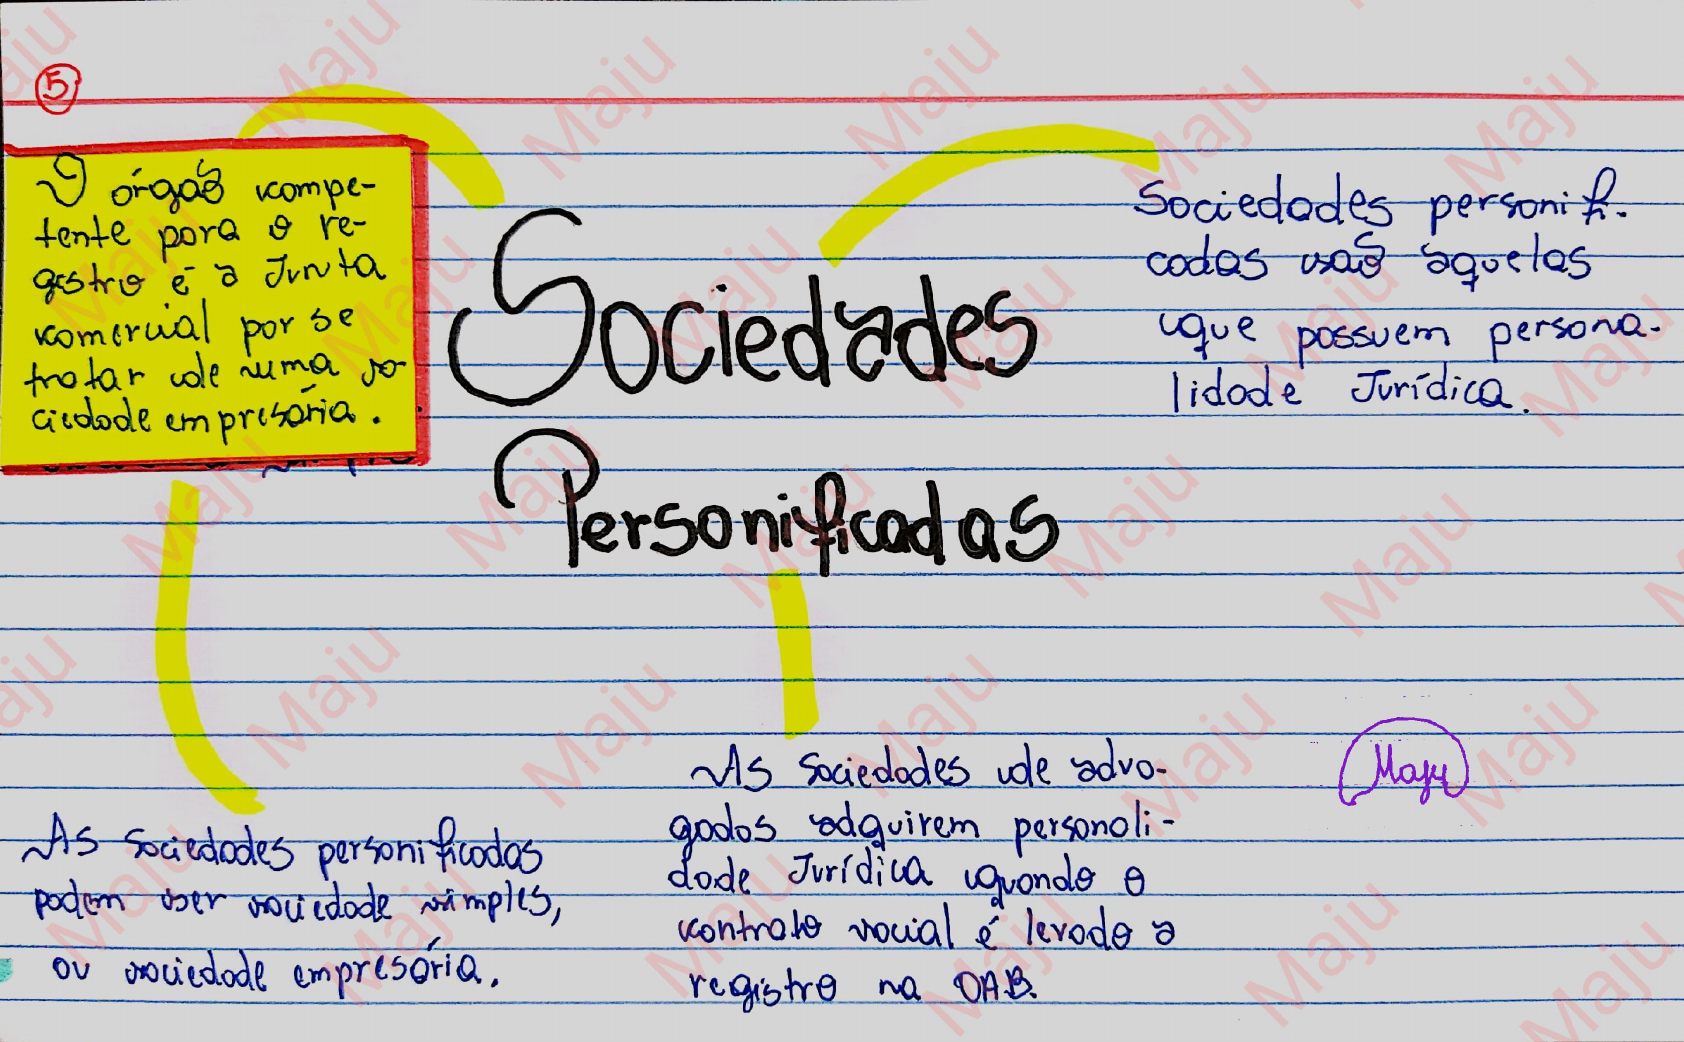 5
O órgão compe-
tente para o re-
gistro é a Junta
comercial por se
tratar de uma so-
ciedade empresária.
Sociedades
Personificadas
Sociedades personifi-
cadas são aquelas
que possuem persona-
lidade Jurídica.
As Sociedades personificadas
podem ser sociedade simples,
ou sociedade empresária.
As Sociedades de advo-
gados adquirem personali-
dade Jurídica quando o
contrato social é levado a
registro na OAB.
Maju